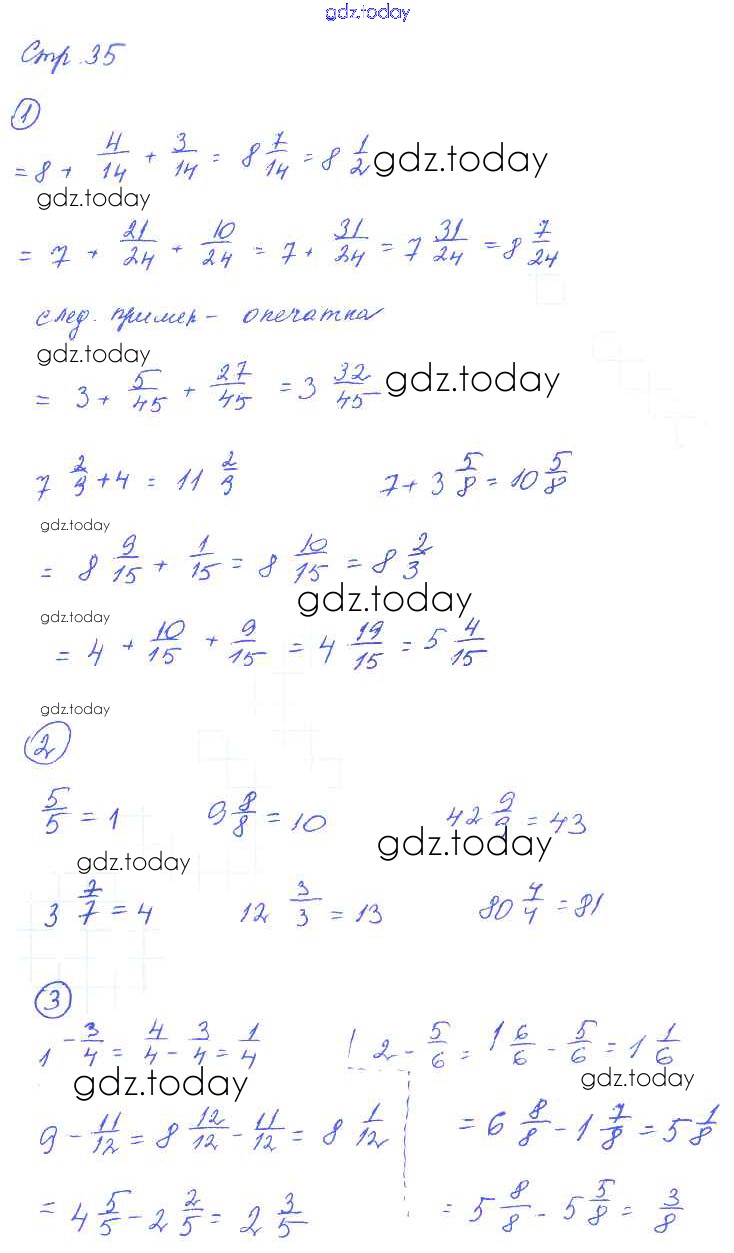 gdz.today
Стр. 35
1
= 8 + 4/14 + 3/14 = 8 7/14 = 8 1/2 gdz.today
gdz.today
= 7 + 21/24 + 10/24 = 7 + 31/24 = 7 31/24 = 8 7/24
след. пример - опечатка
gdz.today
= 3 + 5/45 + 27/45 = 3 32/45 gdz.today
7 2/9 + 4 = 11 2/9 7 + 3 5/8 = 10 5/8
gdz.today
= 8 9/15 + 1/15 = 8 10/15 = 8 2/3
gdz.today
gdz.today
= 4 + 10/15 + 9/15 = 4 19/15 = 5 4/15
gdz.today
2
5/5 = 1 9 8/8 = 10 42 9/9 = 43
gdz.today gdz.today
3 7/7 = 4 12 3/3 = 13 80 4/4 = 81
3
1 - 3/4 = 4/4 - 3/4 = 1/4 2 - 5/6 = 1 6/6 - 5/6 = 1 1/6
gdz.today gdz.today
9 - 11/12 = 8 12/12 - 11/12 = 8 1/12 = 6 8/8 - 1 7/8 = 5 1/8
= 4 5/5 - 2 2/5 = 2 3/5 = 5 8/8 - 5 5/8 = 3/8